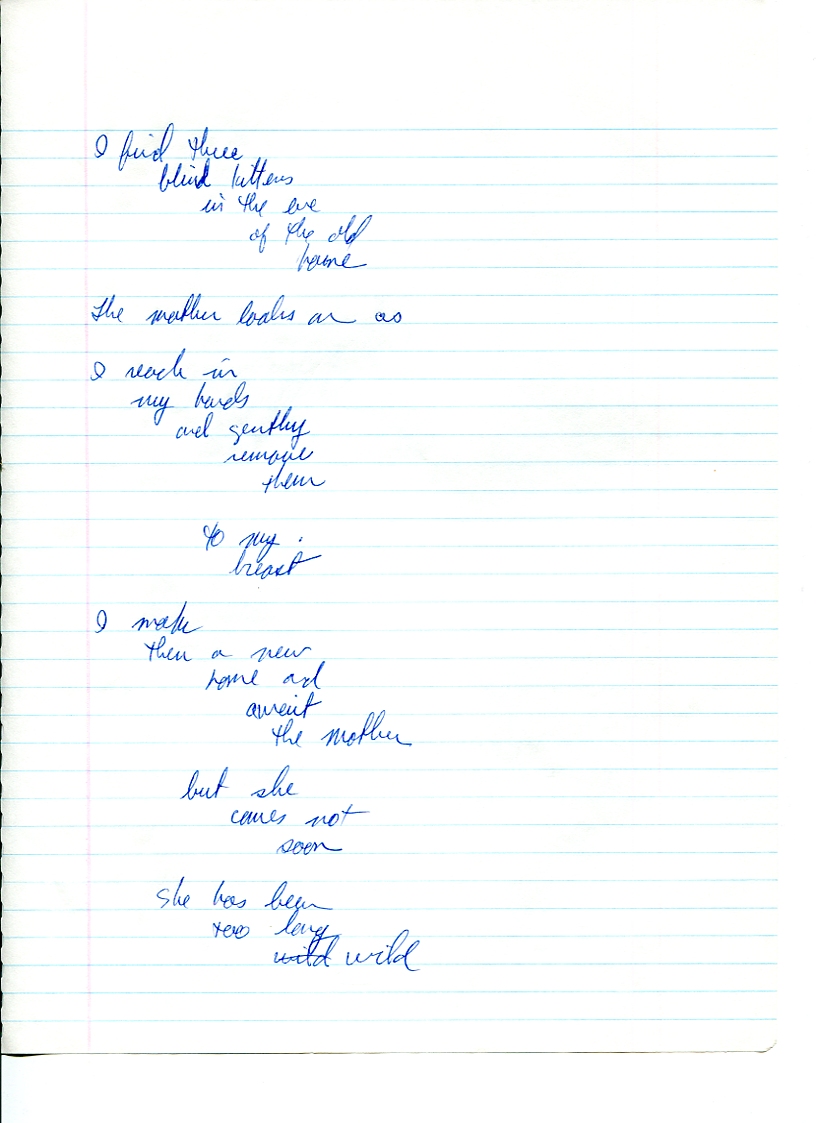 I find three
blind kittens
in the eve
of the old
home
The mother looks on as
I reach in
my hands
and gently
remove
them
to my
breast
I make
them a new
home and
await
the mother
but she
comes not
soon
She has been
too long
wild wild